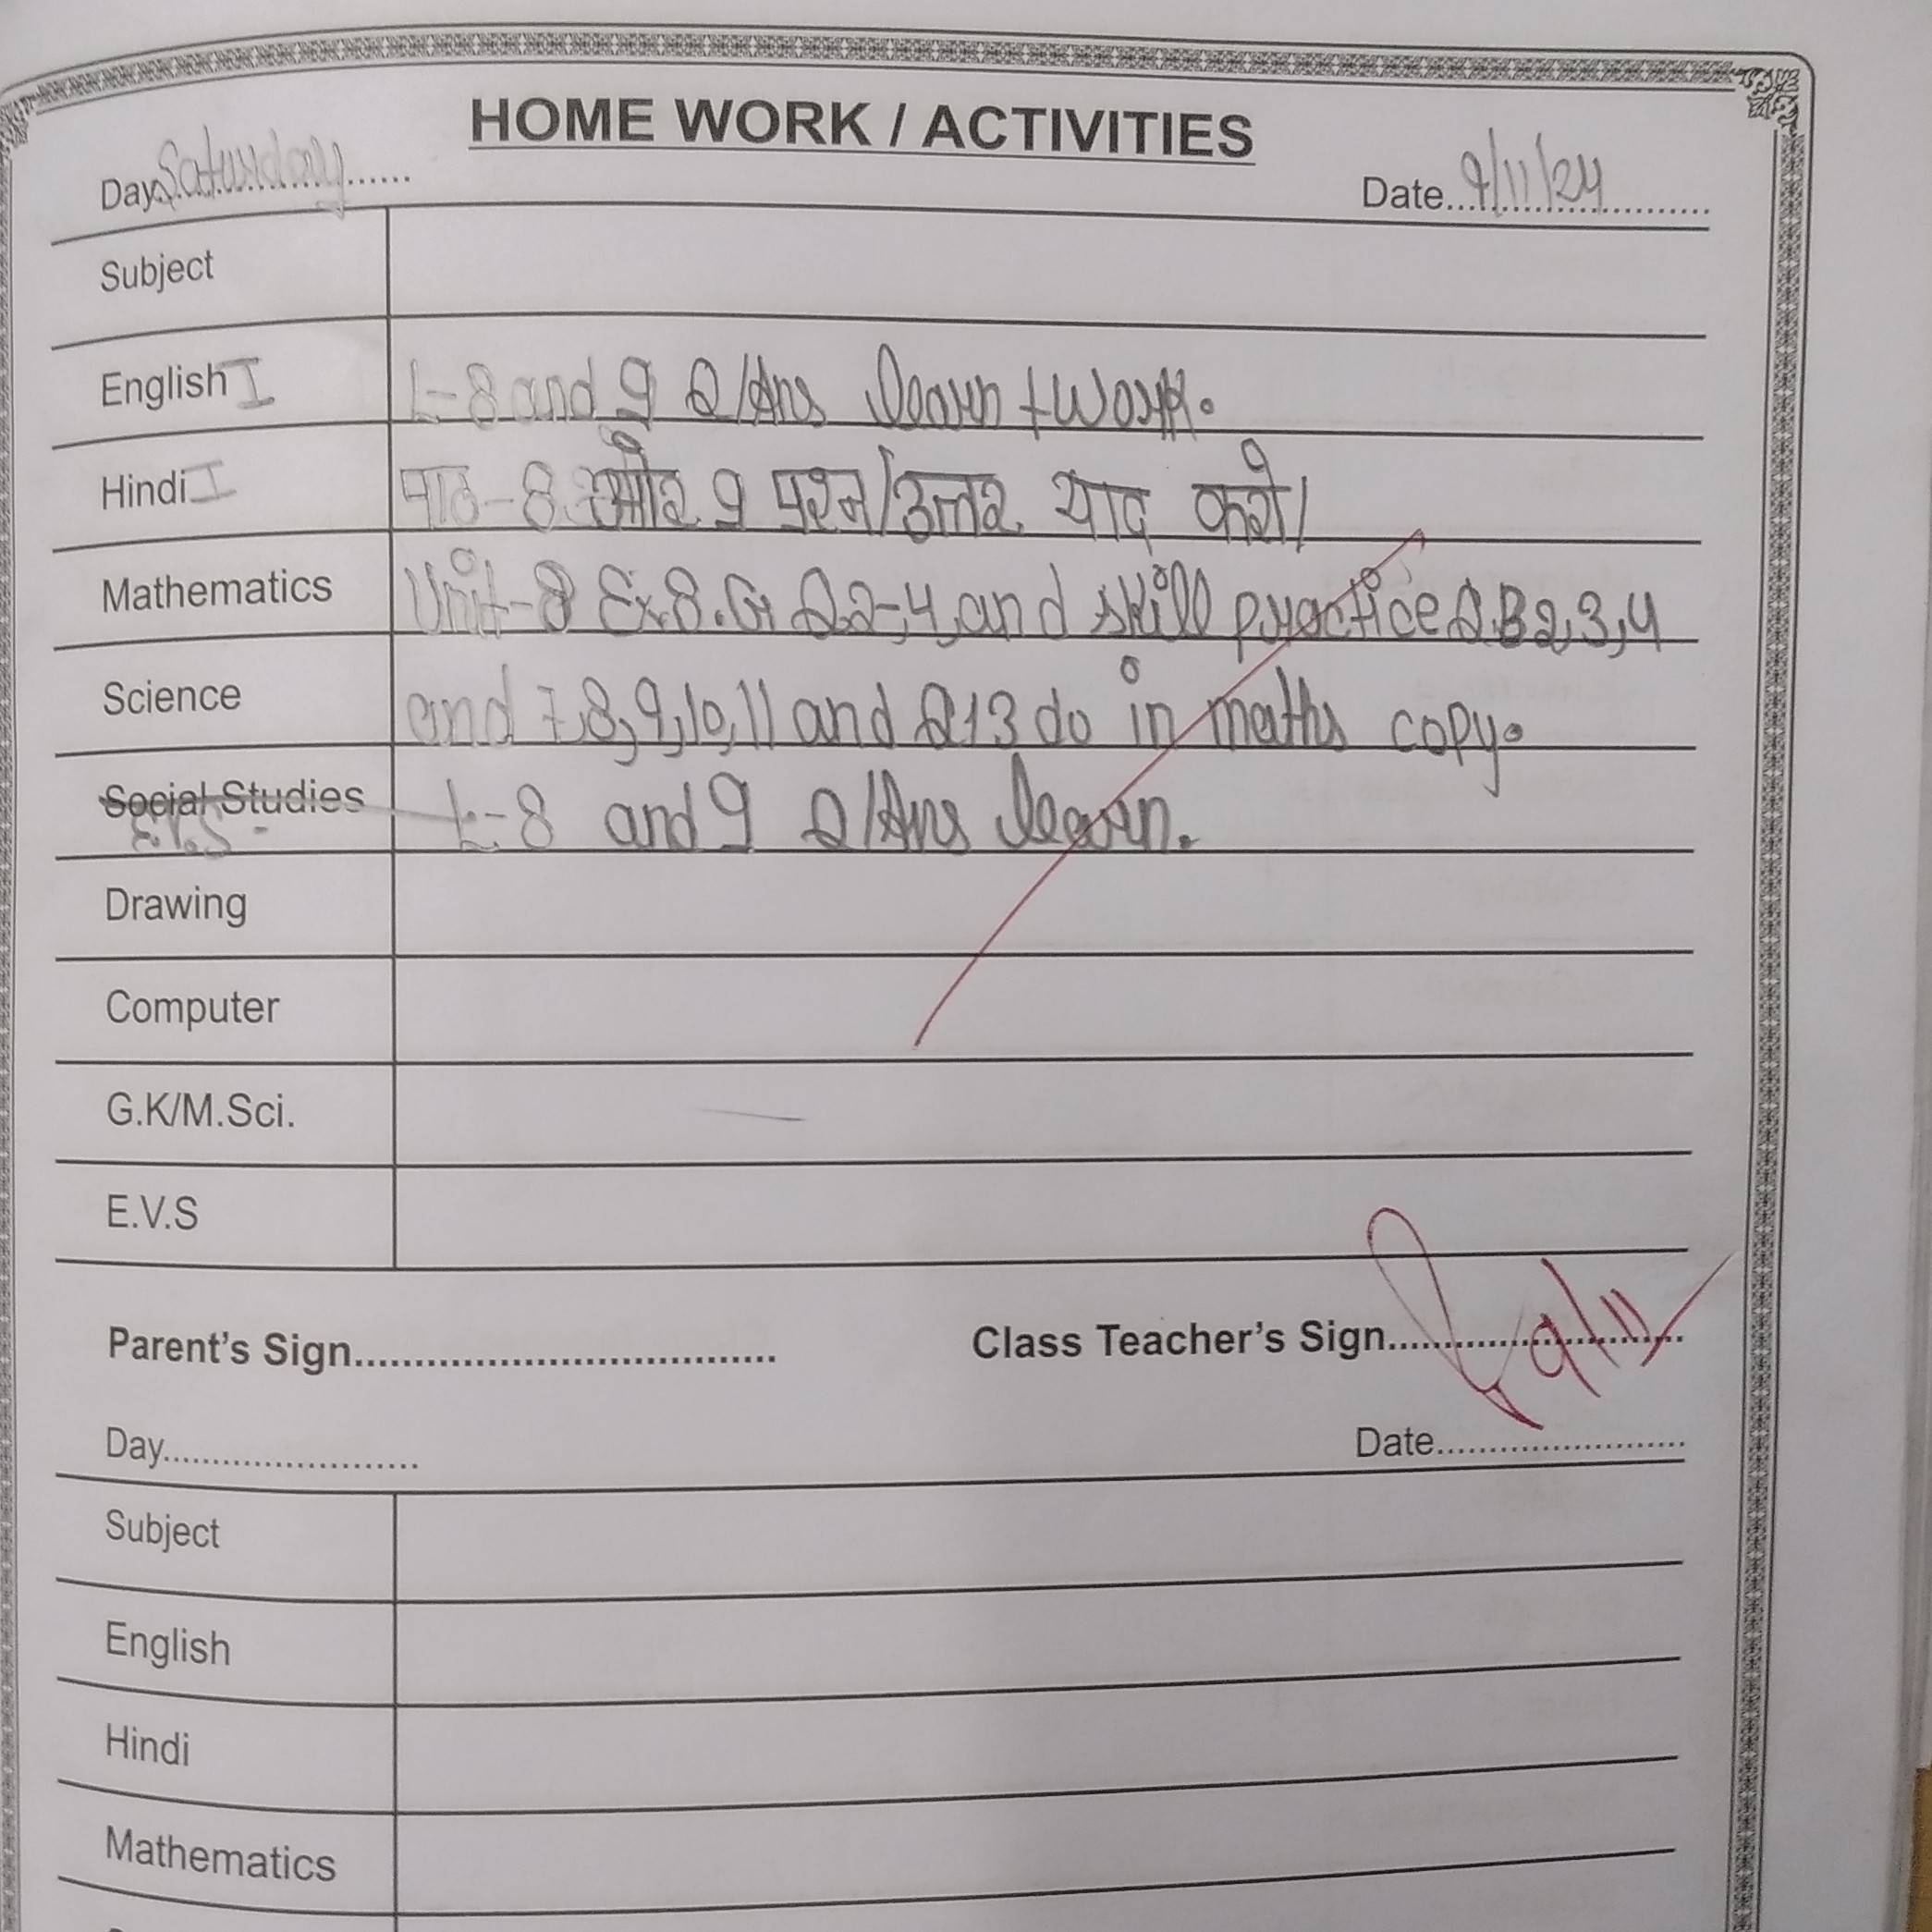 HOME WORK / ACTIVITIES
Day Saturday Date 9/11/24
Subject
English I L-8 and 9 Q/Ans learn + work.
Hindi I पाठ-8 और 9 प्रश्न/उत्तर याद करो।
Mathematics Unit-8 Ex8.G Q2-4, and skill practice Q.B 2,3,4
Science and 7,8,9,10,11 and Q13 do in maths copy.
Social Studies L-8 and 9 Q/Ans learn.
E.V.S
Drawing
Computer
G.K/M.Sci.
E.V.S
Parent's Sign Class Teacher's Sign 9/11
Day Date
Subject
English
Hindi
Mathematics